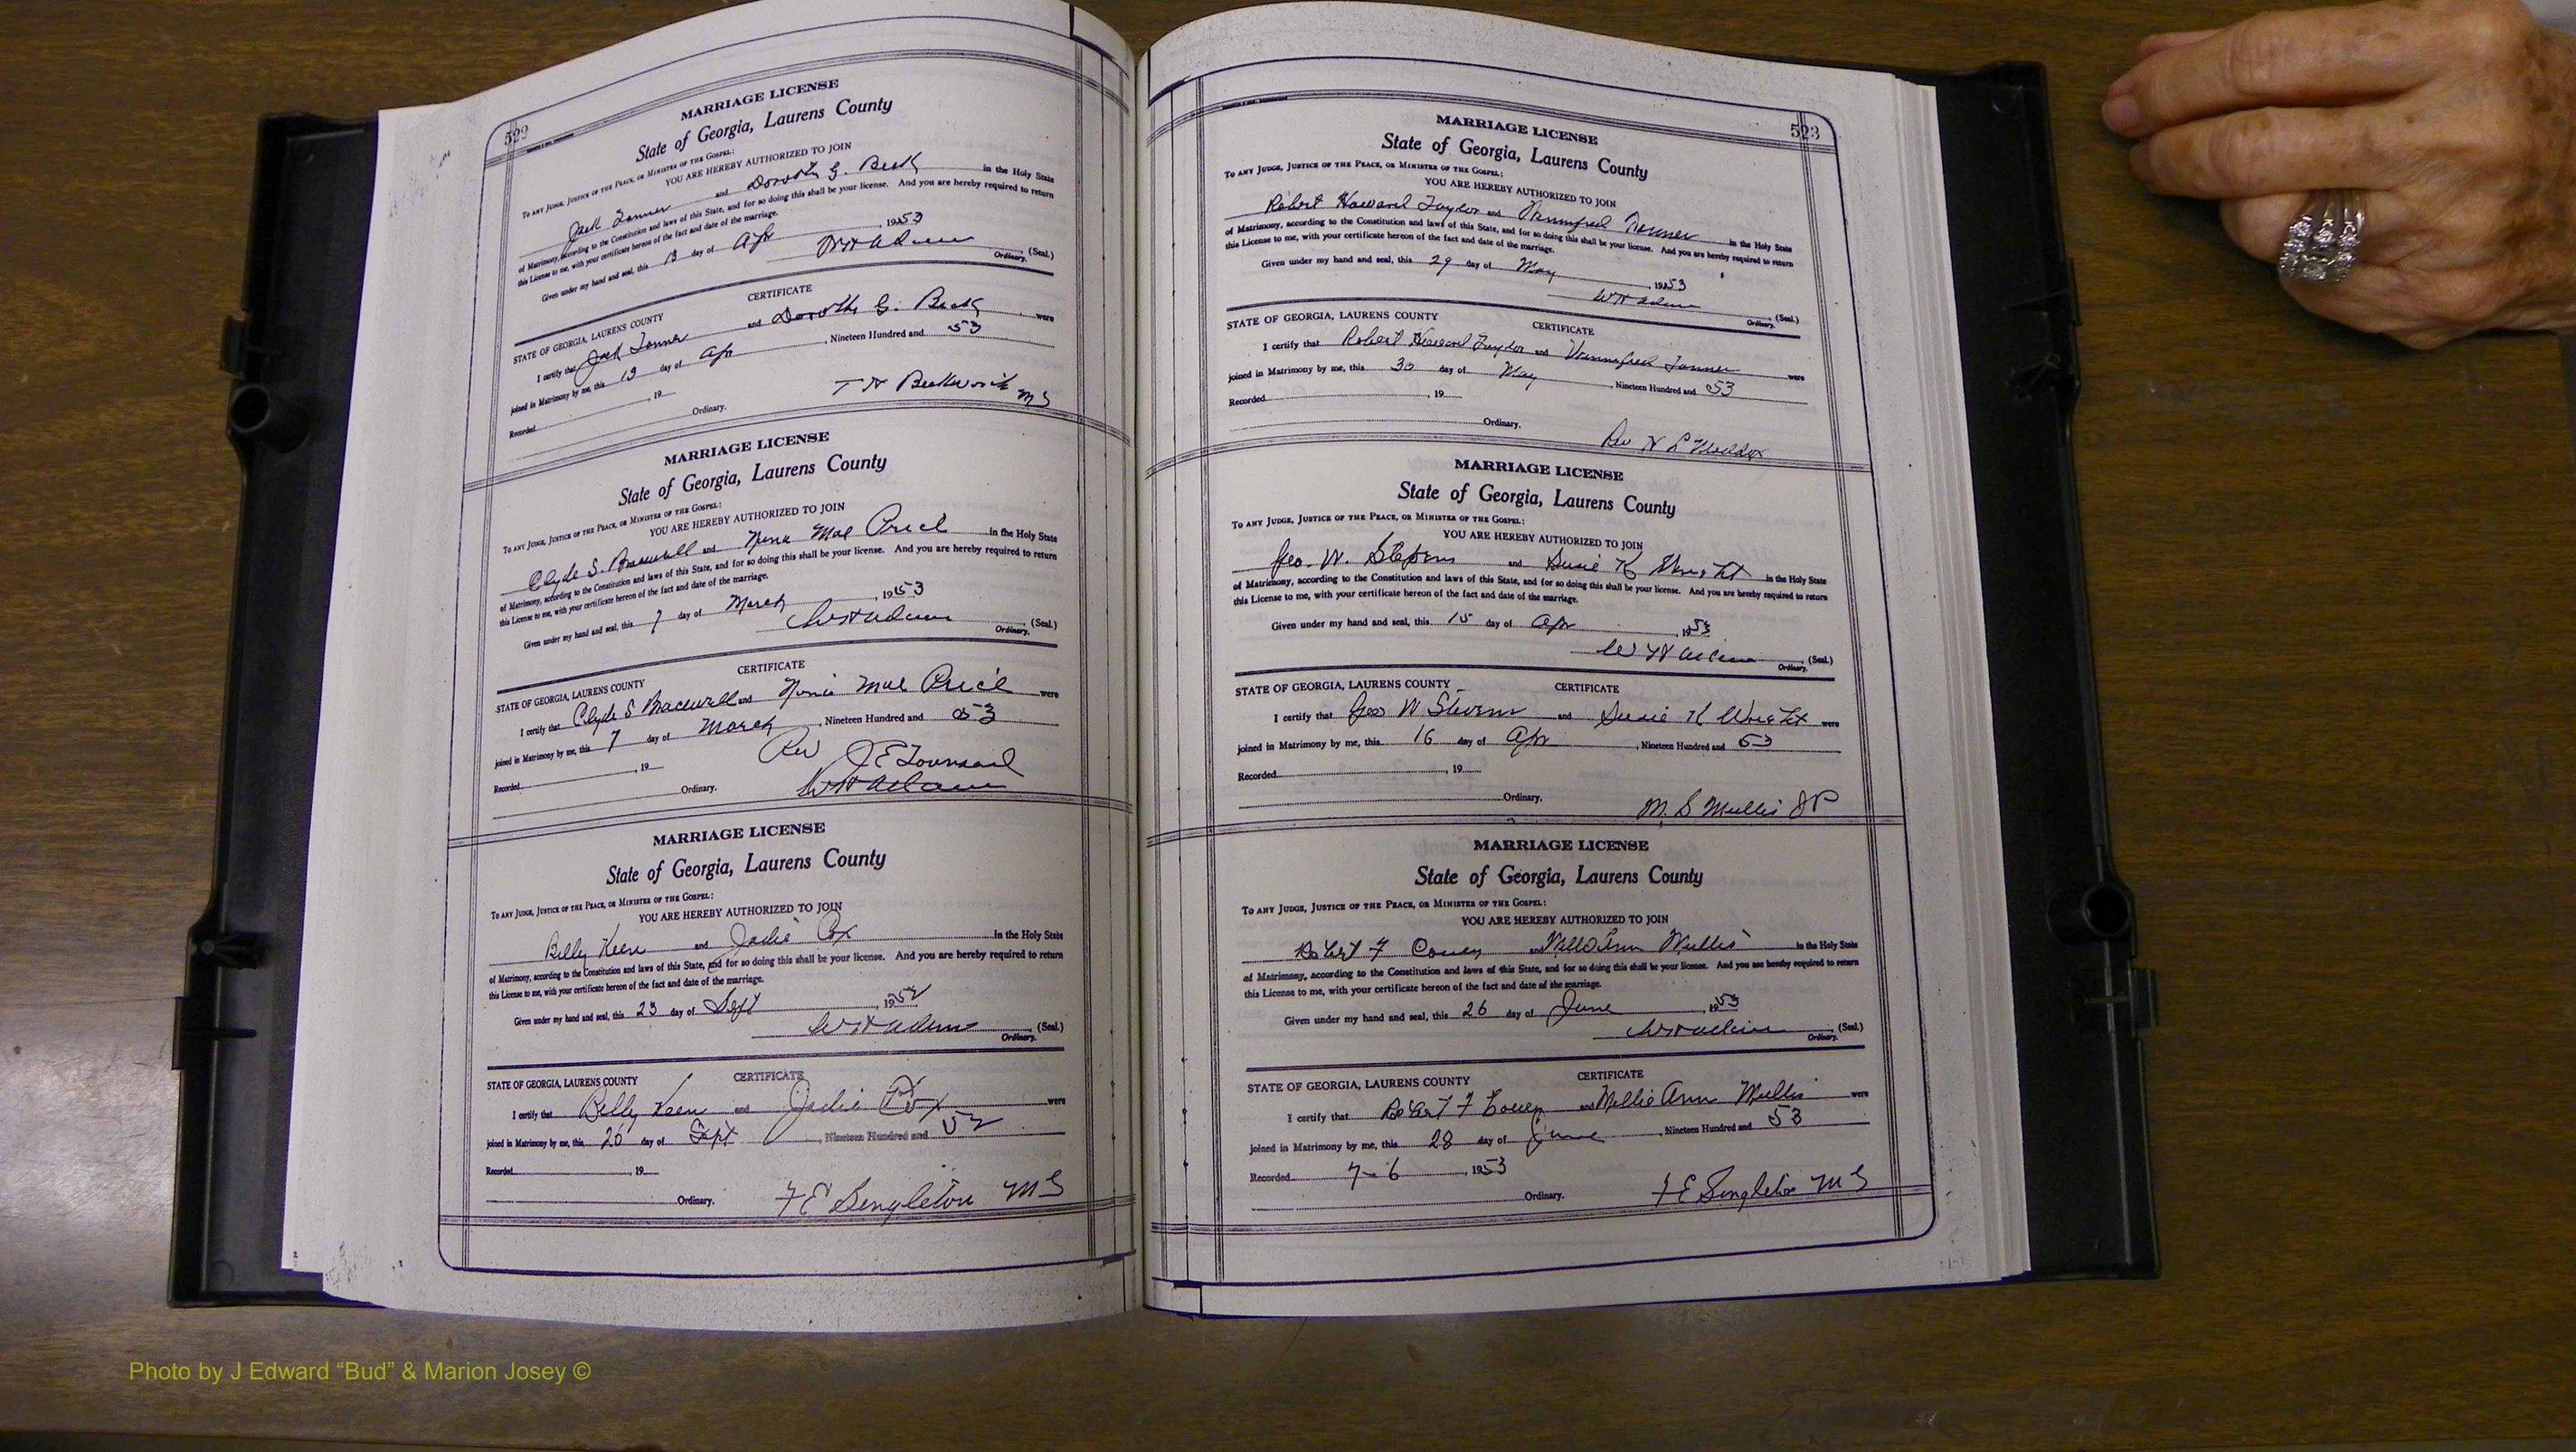 522
MARRIAGE LICENSE
State of Georgia, Laurens County
To any Judge, Justice of the Peace, or Minister of the Gospel:
YOU ARE HEREBY AUTHORIZED TO JOIN
Jack Tanner and Dorothy G. Beck in the Holy State
of Matrimony, according to the Constitution and laws of this State, and for so doing this shall be your license. And you are hereby required to return
this License to me, with your certificate hereon of the fact and date of the marriage.
Given under my hand and seal, this 13 day of Apr, 1953
W H Adams (Seal.)
Ordinary.
CERTIFICATE
STATE OF GEORGIA, LAURENS COUNTY
I certify that Jack Tanner and Dorothy G. Beck were
joined in Matrimony by me, this 13 day of Apr, Nineteen Hundred and 53
Recorded, 19
Ordinary.
MARRIAGE LICENSE
State of Georgia, Laurens County
To any Judge, Justice of the Peace, or Minister of the Gospel:
YOU ARE HEREBY AUTHORIZED TO JOIN
Clyde S. Bracewell and Mae Price in the Holy State
of Matrimony, according to the Constitution and laws of this State, and for so doing this shall be your license. And you are hereby required to return
this License to me, with your certificate hereon of the fact and date of the marriage.
Given under my hand and seal, this 7 day of March, 1953
W H Adams (Seal.)
Ordinary.
CERTIFICATE
STATE OF GEORGIA, LAURENS COUNTY
I certify that Clyde S Bracewell and Mae Price were
joined in Matrimony by me, this 7 day of March, Nineteen Hundred and 53
Recorded, 19
Rev J E Townsend
Ordinary. W H Adams
MARRIAGE LICENSE
State of Georgia, Laurens County
To any Judge, Justice of the Peace, or Minister of the Gospel:
YOU ARE HEREBY AUTHORIZED TO JOIN
Billy Keen and Jackie Cox in the Holy State
of Matrimony, according to the Constitution and laws of this State, and for so doing this shall be your license. And you are hereby required to return
this License to me, with your certificate hereon of the fact and date of the marriage.
Given under my hand and seal, this 23 day of Sept, 1952
W H Adams (Seal.)
Ordinary.
CERTIFICATE
STATE OF GEORGIA, LAURENS COUNTY
I certify that Billy Keen and Jackie Cox were
joined in Matrimony by me, this day of Sept, Nineteen Hundred and 52
Recorded, 19
Ordinary. F E Singleton M G
523
MARRIAGE LICENSE
State of Georgia, Laurens County
To any Judge, Justice of the Peace, or Minister of the Gospel:
YOU ARE HEREBY AUTHORIZED TO JOIN
Robert Howard Taylor and Tanner in the Holy State
of Matrimony, according to the Constitution and laws of this State, and for so doing this shall be your license. And you are hereby required to return
this License to me, with your certificate hereon of the fact and date of the marriage.
Given under my hand and seal, this 29 day of May, 1953
W H Adams (Seal.)
Ordinary.
CERTIFICATE
STATE OF GEORGIA, LAURENS COUNTY
I certify that Robert Howard Taylor and Tanner were
joined in Matrimony by me, this 30 day of May, Nineteen Hundred and 53
Recorded, 19
Ordinary.
Rev H L Maddox
MARRIAGE LICENSE
State of Georgia, Laurens County
To any Judge, Justice of the Peace, or Minister of the Gospel:
YOU ARE HEREBY AUTHORIZED TO JOIN
Geo. W. and Susie K Wright in the Holy State
of Matrimony, according to the Constitution and laws of this State, and for so doing this shall be your license. And you are hereby required to return
this License to me, with your certificate hereon of the fact and date of the marriage.
Given under my hand and seal, this 15 day of Apr, 1953
W H Adams (Seal.)
Ordinary.
CERTIFICATE
STATE OF GEORGIA, LAURENS COUNTY
I certify that Geo W Stevens and Susie K Wright were
joined in Matrimony by me, this 16 day of Apr, Nineteen Hundred and 53
Recorded, 19
Ordinary.
M. S Mullis J P
MARRIAGE LICENSE
State of Georgia, Laurens County
To any Judge, Justice of the Peace, or Minister of the Gospel:
YOU ARE HEREBY AUTHORIZED TO JOIN
Robert F and Ann Mullis in the Holy State
of Matrimony, according to the Constitution and laws of this State, and for so doing this shall be your license. And you are hereby required to return
this License to me, with your certificate hereon of the fact and date of the marriage.
Given under my hand and seal, this 26 day of June, 1953
W H Adams (Seal.)
Ordinary.
CERTIFICATE
STATE OF GEORGIA, LAURENS COUNTY
I certify that Robert F and Millie Ann Mullis were
joined in Matrimony by me, this 28 day of June, Nineteen Hundred and 53
Recorded 7-6, 1953
Ordinary. F E Singleton M G
Photo by J Edward “Bud” & Marion Josey ©